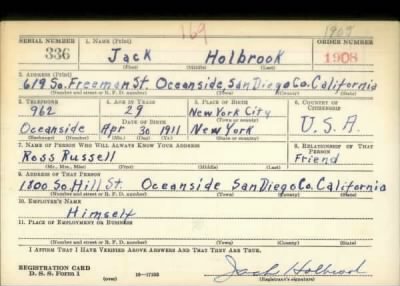 169 1909
SERIAL NUMBER 1. NAME (Print) ORDER NUMBER
336 Jack Holbrook 1908
(First) (Middle) (Last)
2. ADDRESS (Print)
619 So. Freeman St. Oceanside, San Diego Co. California
(Number and street or R. F. D. number) (Town) (County) (State)
3. TELEPHONE 4. AGE IN YEARS 5. PLACE OF BIRTH 6. COUNTRY OF CITIZENSHIP
962 29 New York City
DATE OF BIRTH (Town or county)
Oceanside Apr 30 1911 New York U.S.A.
(Exchange) (Number) (Mo.) (Day) (Yr.) (State or country)
7. NAME OF PERSON WHO WILL ALWAYS KNOW YOUR ADDRESS 8. RELATIONSHIP OF THAT PERSON
Ross Russell Friend
(Mr., Mrs., Miss) (First) (Middle) (Last)
9. ADDRESS OF THAT PERSON
1800 So. Hill St. Oceanside San Diego Co. California
(Number and street or R. F. D. number) (Town) (County) (State)
10. EMPLOYER'S NAME
Himself
11. PLACE OF EMPLOYMENT OR BUSINESS
(Number and street or R. F. D. number) (Town) (County) (State)
I AFFIRM THAT I HAVE VERIFIED ABOVE ANSWERS AND THAT THEY ARE TRUE.
REGISTRATION CARD
D. S. S. Form 1 (over) 16—17105 Jack Holbrook